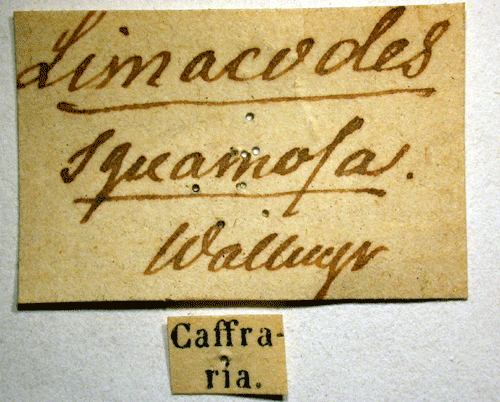 Limacodes
squamosa.
Wallengr
Caffra-
ria.